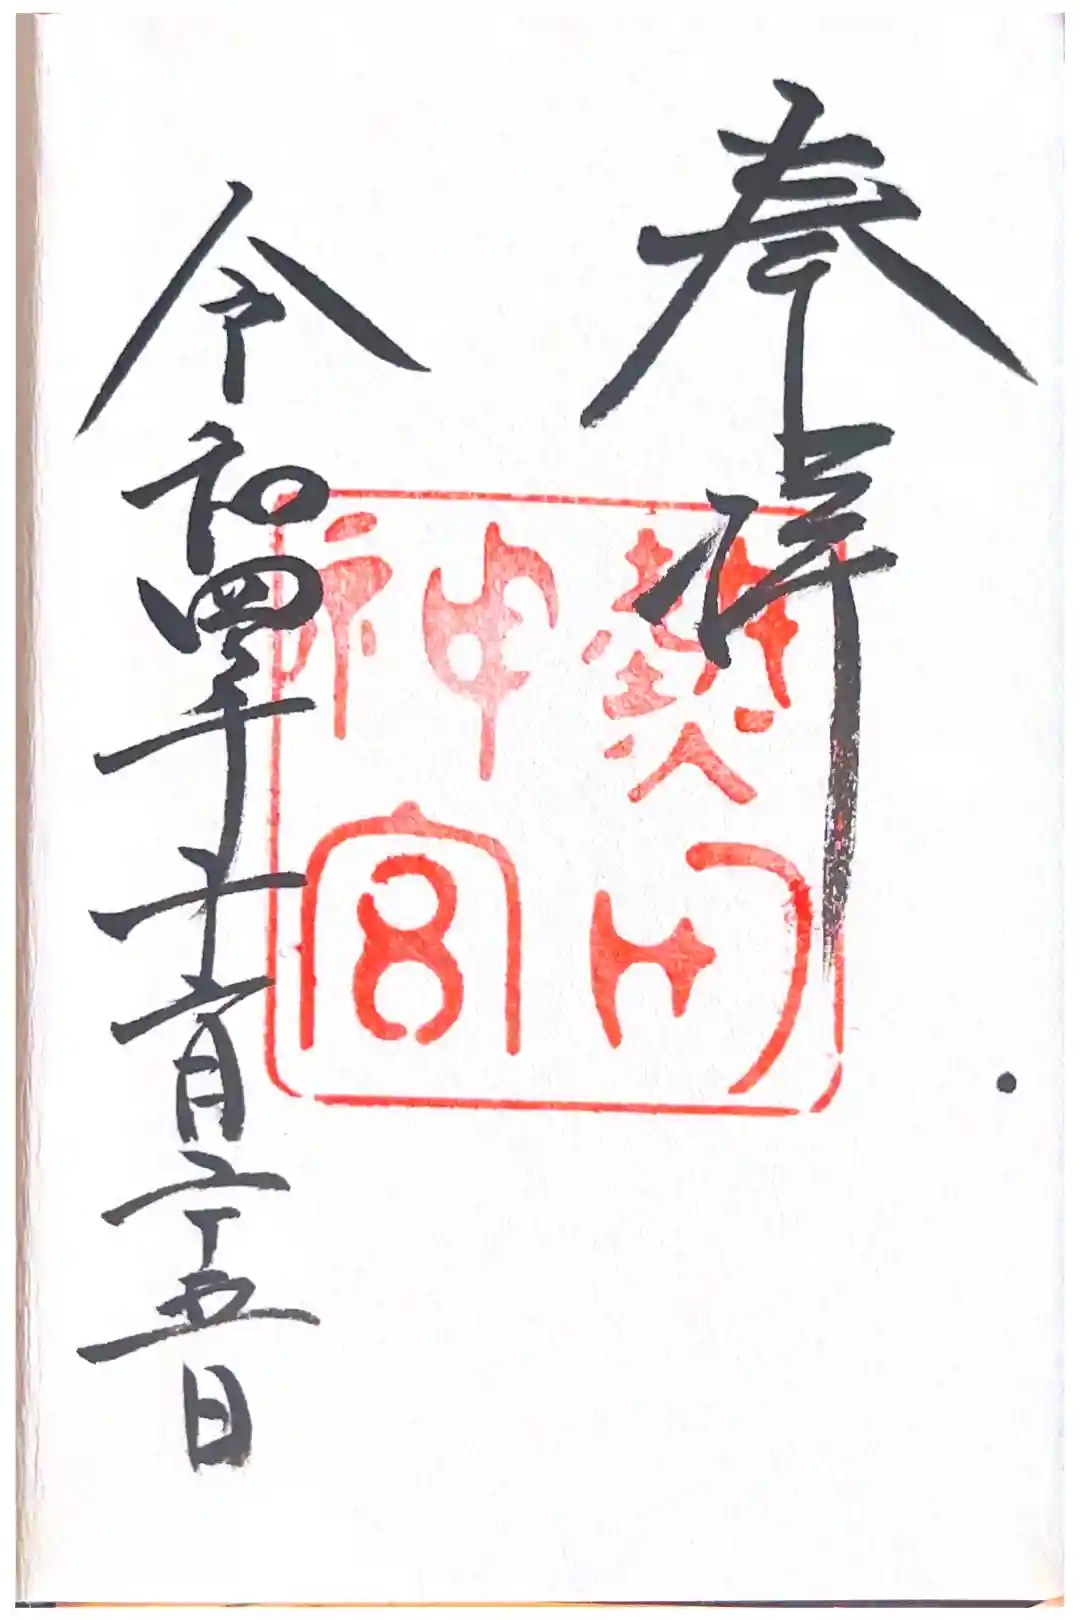 奉拝
熱田
神宮
令和四年十二月二十五日